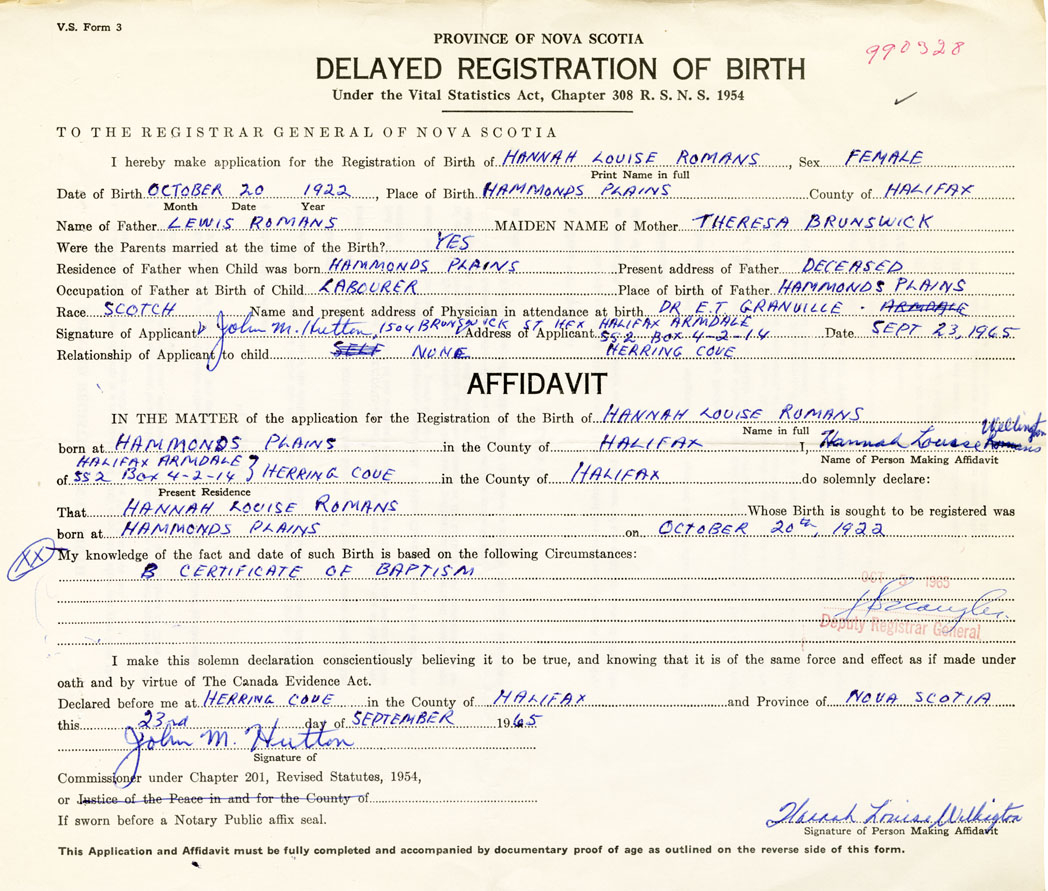 V.S. Form 3
PROVINCE OF NOVA SCOTIA
990328
DELAYED REGISTRATION OF BIRTH
Under the Vital Statistics Act, Chapter 308 R. S. N. S. 1954
TO THE REGISTRAR GENERAL OF NOVA SCOTIA
I hereby make application for the Registration of Birth of HANNAH LOUISE ROMANS, Sex FEMALE
Print Name in full
Date of Birth OCTOBER 20 1922, Place of Birth HAMMONDS PLAINS County of HALIFAX
Month Date Year
Name of Father LEWIS ROMANS MAIDEN NAME of Mother THERESA BRUNSWICK
Were the Parents married at the time of the Birth? YES
Residence of Father when Child was born HAMMONDS PLAINS Present address of Father DECEASED
Occupation of Father at Birth of Child LABOURER Place of birth of Father HAMMONDS PLAINS
Race SCOTCH Name and present address of Physician in attendance at birth DR E.T. GRANVILLE - ARMDALE
Signature of Applicant John M. Hutton, 1504 BRUNSWICK ST HFX Address of Applicant HALIFAX ARMDALE SS 2 BOX 4-2-14 Date SEPT 23, 1965
Relationship of Applicant to child SELF NONE HERRING COVE
AFFIDAVIT
IN THE MATTER of the application for the Registration of the Birth of HANNAH LOUISE ROMANS
Name in full
born at HAMMONDS PLAINS in the County of HALIFAX I, Hannah Louise Romans Wellington
Name of Person Making Affidavit
of HALIFAX ARMDALE SS 2 BOX 4-2-14 } HERRING COVE in the County of HALIFAX do solemnly declare:
Present Residence
That HANNAH LOUISE ROMANS Whose Birth is sought to be registered was
born at HAMMONDS PLAINS on OCTOBER 20th, 1922
XX My knowledge of the fact and date of such Birth is based on the following Circumstances:
B CERTIFICATE OF BAPTISM
OCT 1965
Deputy Registrar General
I make this solemn declaration conscientiously believing it to be true, and knowing that it is of the same force and effect as if made under
oath and by virtue of The Canada Evidence Act.
Declared before me at HERRING COVE in the County of HALIFAX and Province of NOVA SCOTIA
this 23rd day of SEPTEMBER 1965
John M. Hutton
Signature of
Commissioner under Chapter 201, Revised Statutes, 1954,
or Justice of the Peace in and for the County of
If sworn before a Notary Public affix seal.
Hannah Louise Wellington
Signature of Person Making Affidavit
This Application and Affidavit must be fully completed and accompanied by documentary proof of age as outlined on the reverse side of this form.